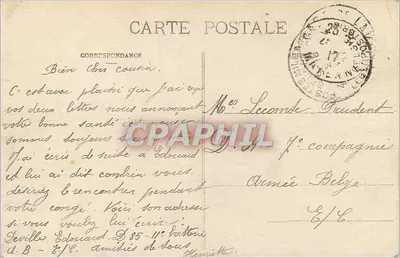 CARTE POSTALE
CORRESPONDANCE
Bien cher cousin.
C'est avec plaisir que j'ai reçu
vos deux lettres nous annonçant
votre bonne santé
sommes toujours
J'ai écris de suite à Edouard
et lui ai dit combien vous
désirez le rencontrer pendant
votre congé. Voici son adresse
si vous voulez lui écrire:
Deville Edouard D. 85 - 11e batterie
A.B - E/C. amitiés de tous
Henriette
Mer Lecombe Prudent
D 7e compagnie
Armée Belge
E/C
CPAPHIL